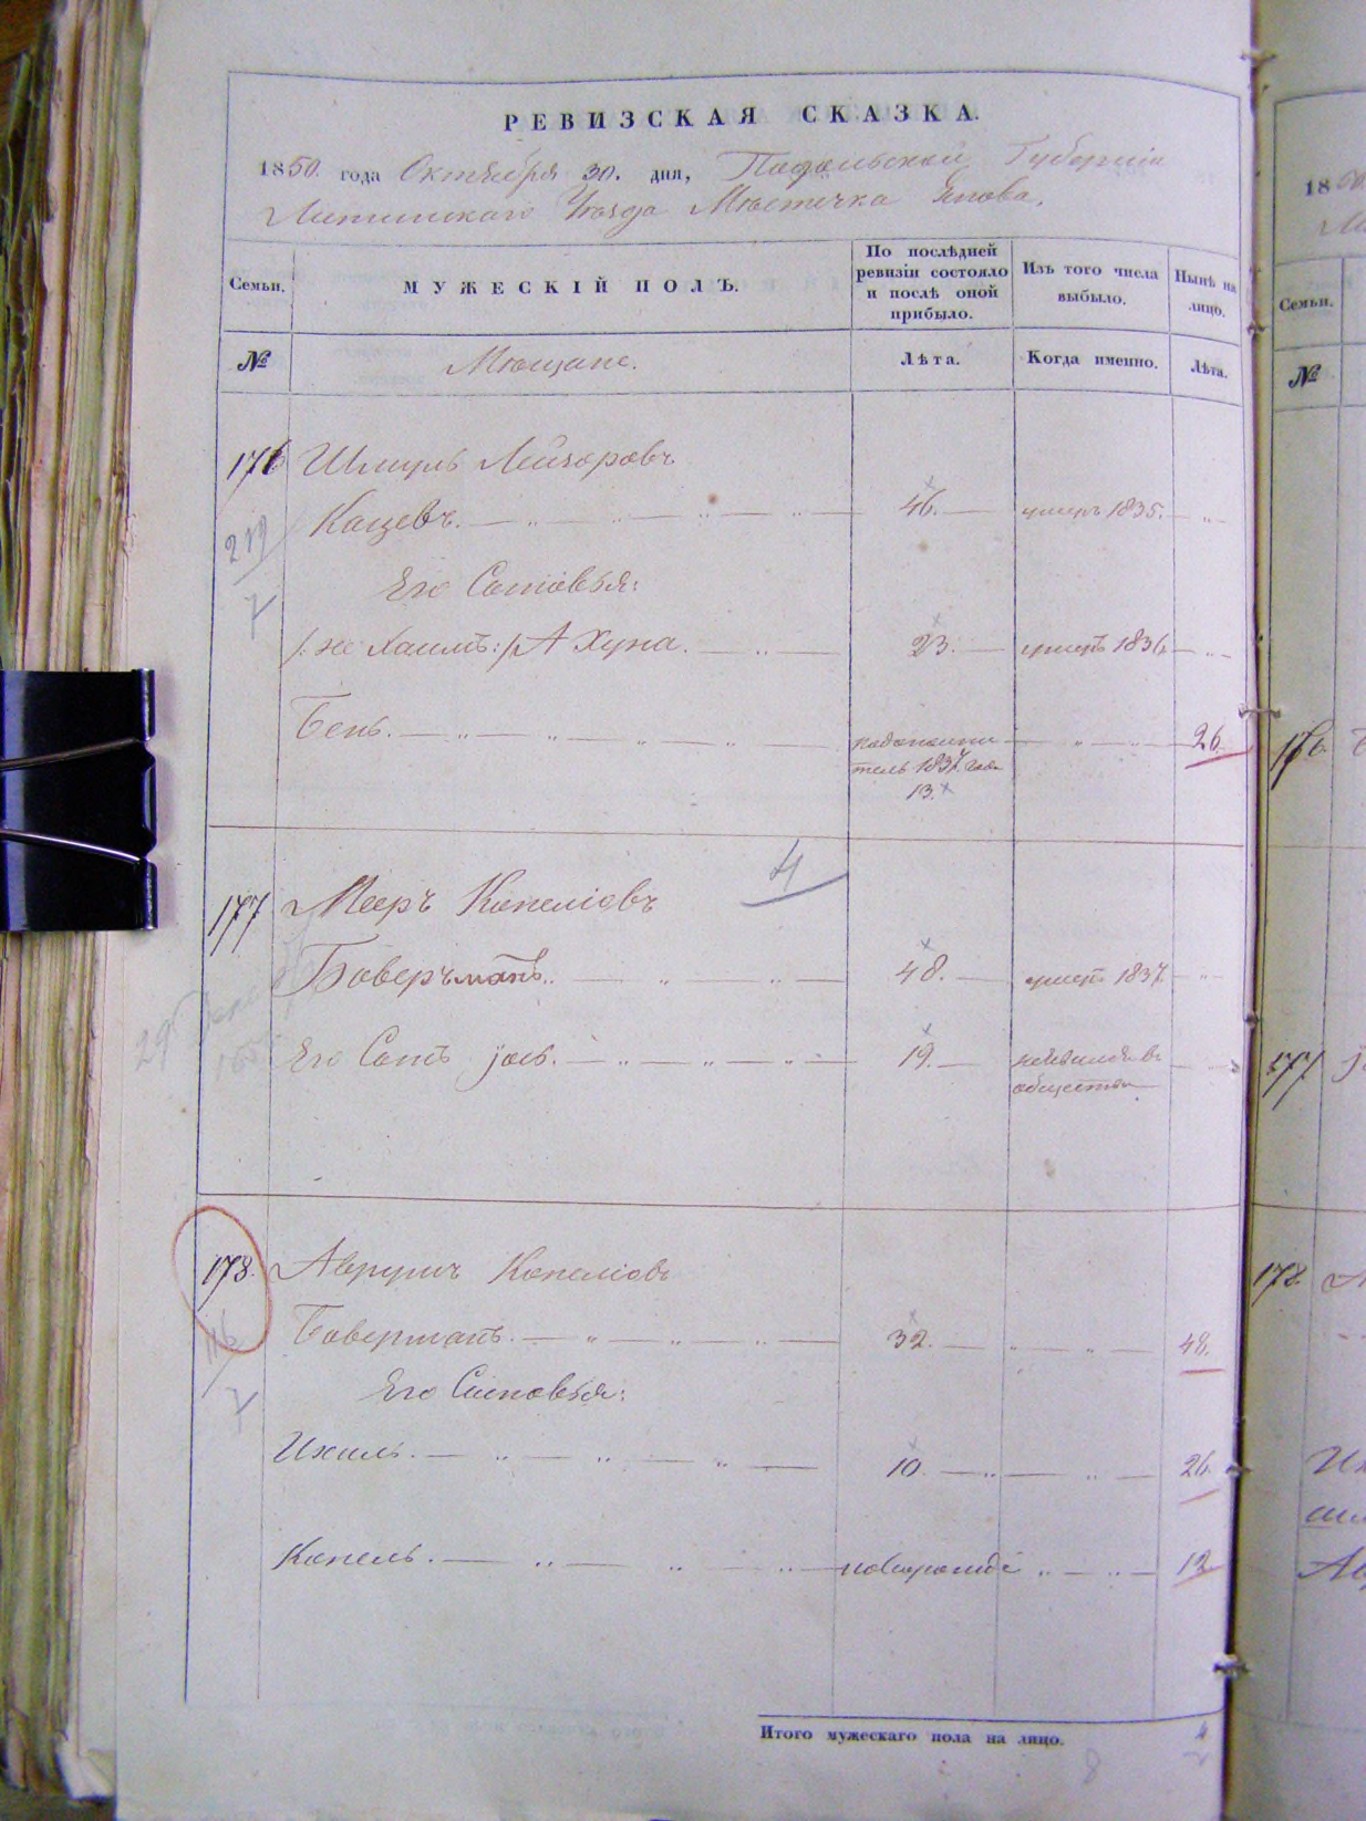 РЕВИЗСКАЯ СКАЗКА.
1850. года Октября 30. дня, Подольской Губерніи
Литинскаго Уѣзда Мѣстечка Янова,
Семьи.
МУЖЕСКІЙ ПОЛЪ.
По послѣдней ревизіи состояло и послѣ оной прибыло.
Изъ того числа выбыло.
Нынѣ на лицо.
№
Мѣщане.
Лѣта.
Когда именно.
Лѣта.
176 Шмуль Лейзоровъ
Кацевъ. 46. умеръ 1835.
219
Его Сыновья:
/: не Хаимъ :/ А Хуна. 23. умеръ 1836
Бень. 26.
тель 1837 года
13.
4
177 Мееръ Копеліовъ
Боверъманъ. 48. умеръ 1837.
Его Сынъ Јось. 19.
общества
178. Аврумъ Копеліовъ
Боверманъ. 32. 48.
116
Его Сыновья:
Ихиль. 10. 26.
Копель. новорожде 12
Итого мужескаго пола на лицо. 4
8
18
Семьи.
№
176.
177
178.